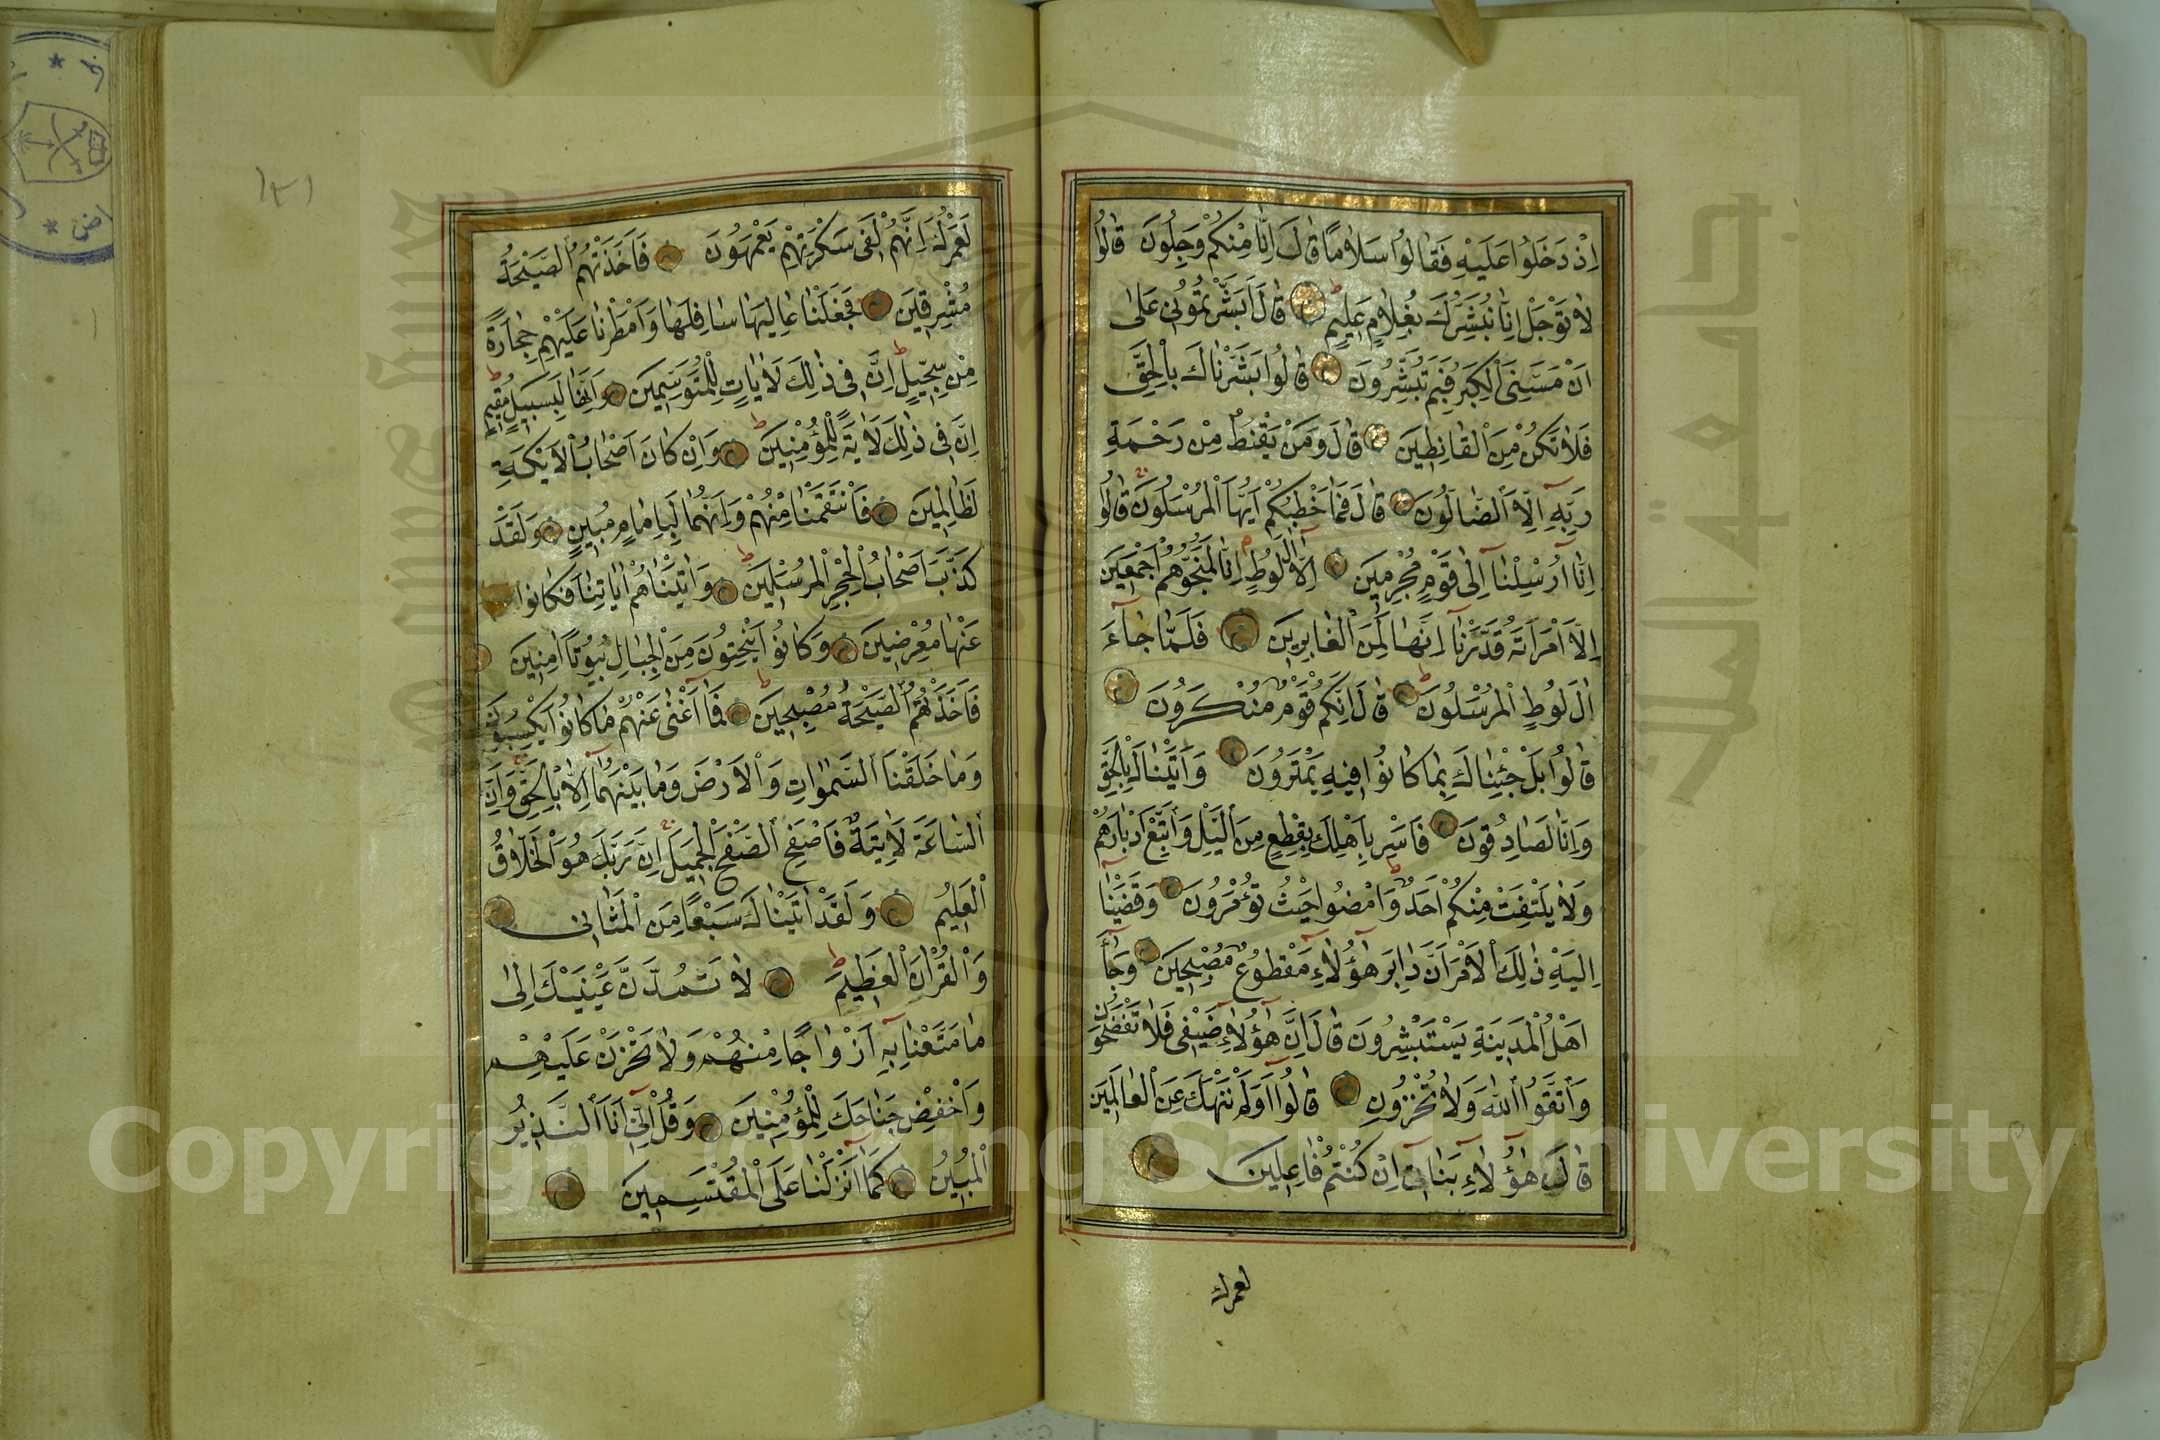 اِذْ دَخَلُوا عَلَيْهِ فَقَالُوا سَلَامًا قَالَ اِنَّا مِنْكُمْ وَجِلُونَ قَالُوا
لَا تَوْجَلْ اِنَّا نُبَشِّرُكَ بِغُلَامٍ عَلِيمٍ قَالَ اَبَشَّرْتُمُونِى عَلٰى
اَنْ مَسَّنِىَ الْكِبَرُ فَبِمَ تُبَشِّرُونَ قَالُوا بَشَّرْنَاكَ بِالْحَقِّ
فَلَا تَكُنْ مِنَ الْقَانِطِينَ قَالَ وَمَنْ يَقْنَطُ مِنْ رَحْمَةِ
رَبِّهِ اِلَّا الضَّالُّونَ قَالَ فَمَا خَطْبُكُمْ اَيُّهَا الْمُرْسَلُونَ قَالُوا
اِنَّا اُرْسِلْنَا اِلٰى قَوْمٍ مُجْرِمِينَ اِلَّا اٰلَ لُوطٍ اِنَّا لَمُنَجُّوهُمْ اَجْمَعِينَ
اِلَّا امْرَاَتَهُ قَدَّرْنَا اِنَّهَا لَمِنَ الْغَابِرِينَ فَلَمَّا جَاءَ
اٰلَ لُوطٍ الْمُرْسَلُونَ قَالَ اِنَّكُمْ قَوْمٌ مُنْكَرُونَ
قَالُوا بَلْ جِئْنَاكَ بِمَا كَانُوا فِيهِ يَمْتَرُونَ وَاَتَيْنَاكَ بِالْحَقِّ
وَاِنَّا لَصَادِقُونَ فَاَسْرِ بِاَهْلِكَ بِقِطْعٍ مِنَ الَّيْلِ وَاتَّبِعْ اَدْبَارَهُمْ
وَلَا يَلْتَفِتْ مِنْكُمْ اَحَدٌ وَامْضُوا حَيْثُ تُؤْمَرُونَ وَقَضَيْنَا
اِلَيْهِ ذٰلِكَ الْاَمْرَ اَنَّ دَابِرَ هٰؤُلَاءِ مَقْطُوعٌ مُصْبِحِينَ وَجَاءَ
اَهْلُ الْمَدِينَةِ يَسْتَبْشِرُونَ قَالَ اِنَّ هٰؤُلَاءِ ضَيْفِى فَلَا تَفْضَحُونِ
وَاتَّقُوا اللّٰهَ وَلَا تُخْزُونِ قَالُوا اَوَلَمْ نَنْهَكَ عَنِ الْعَالَمِينَ
قَالَ هٰؤُلَاءِ بَنَاتِى اِنْ كُنْتُمْ فَاعِلِينَ
لعمرك
١٣١
لَعَمْرُكَ اِنَّهُمْ لَفِى سَكْرَتِهِمْ يَعْمَهُونَ فَاَخَذَتْهُمُ الصَّيْحَةُ
مُشْرِقِينَ فَجَعَلْنَا عَالِيَهَا سَافِلَهَا وَاَمْطَرْنَا عَلَيْهِمْ حِجَارَةً
مِنْ سِجِّيلٍ اِنَّ فِى ذٰلِكَ لَاٰيَاتٍ لِلْمُتَوَسِّمِينَ وَاِنَّهَا لَبِسَبِيلٍ مُقِيمٍ
اِنَّ فِى ذٰلِكَ لَاٰيَةً لِلْمُؤْمِنِينَ وَاِنْ كَانَ اَصْحَابُ الْاَيْكَةِ
لَظَالِمِينَ فَانْتَقَمْنَا مِنْهُمْ وَاِنَّهُمَا لَبِاِمَامٍ مُبِينٍ وَلَقَدْ
كَذَّبَ اَصْحَابُ الْحِجْرِ الْمُرْسَلِينَ وَاٰتَيْنَاهُمْ اٰيَاتِنَا فَكَانُوا
عَنْهَا مُعْرِضِينَ وَكَانُوا يَنْحِتُونَ مِنَ الْجِبَالِ بُيُوتًا اٰمِنِينَ
فَاَخَذَتْهُمُ الصَّيْحَةُ مُصْبِحِينَ فَمَا اَغْنٰى عَنْهُمْ مَا كَانُوا يَكْسِبُونَ
وَمَا خَلَقْنَا السَّمٰوَاتِ وَالْاَرْضَ وَمَا بَيْنَهُمَا اِلَّا بِالْحَقِّ وَاِنَّ
السَّاعَةَ لَاٰتِيَةٌ فَاصْفَحِ الصَّفْحَ الْجَمِيلَ اِنَّ رَبَّكَ هُوَ الْخَلَّاقُ
الْعَلِيمُ وَلَقَدْ اٰتَيْنَاكَ سَبْعًا مِنَ الْمَثَانِى
وَالْقُرْاٰنَ الْعَظِيمَ لَا تَمُدَّنَّ عَيْنَيْكَ اِلٰى
مَا مَتَّعْنَا بِهِ اَزْوَاجًا مِنْهُمْ وَلَا تَحْزَنْ عَلَيْهِمْ
وَاخْفِضْ جَنَاحَكَ لِلْمُؤْمِنِينَ وَقُلْ اِنِّى اَنَا النَّذِيرُ
الْمُبِينُ كَمَا اَنْزَلْنَا عَلَى الْمُقْتَسِمِينَ
Copyright © King Saud University